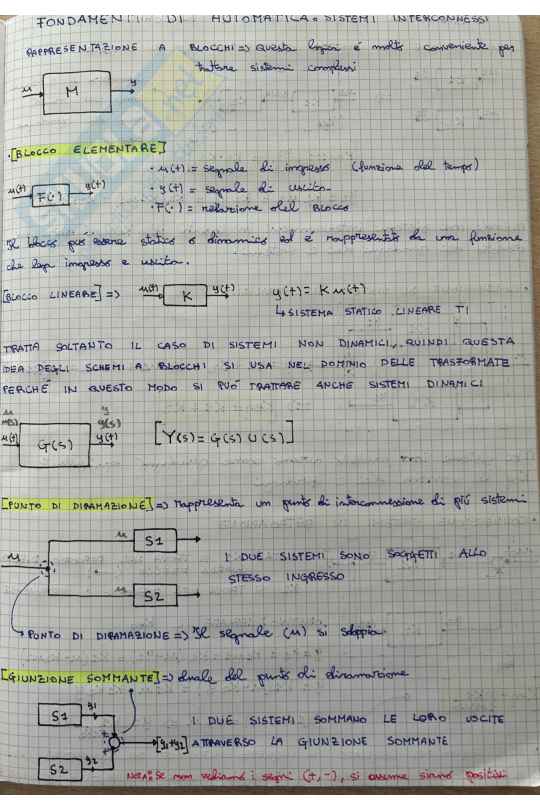 FONDAMENTI DI AUTOMATICA: SISTEMI INTERCONNESSI
RAPPRESENTAZIONE A BLOCCHI => Questa logica è molto conveniente per
trattare sistemi complessi
u M y
·[BLOCCO ELEMENTARE]
· u(t) = segnale di ingresso (funzione del tempo)
u(t) F(·) y(t) · y(t) = segnale di uscita
· F(·) = relazione del BLOCCO
Il blocco può essere statico o dinamico ed è rappresentato da una funzione
che lega ingresso e uscita.
[BLOCCO LINEARE] => u(t) K y(t) y(t) = K u(t)
↳ SISTEMA STATICO LINEARE TI
TRATTA SOLTANTO IL CASO DI SISTEMI NON DINAMICI, QUINDI QUESTA
IDEA DEGLI SCHEMI A BLOCCHI SI USA NEL DOMINIO DELLE TRASFORMATE
PERCHÉ IN QUESTO MODO SI PUÓ TRATTARE ANCHE SISTEMI DINAMICI
u y
u(s) y(s)
u(t) G(s) y(t) [Y(s) = G(s) U(s)]
[PUNTO DI DIRAMAZIONE] => rappresenta un punto di interconnessione di più sistemi
u S1
u I DUE SISTEMI SONO SOGGETTI ALLO
STESSO INGRESSO
u S2
↳ PUNTO DI DIRAMAZIONE => Il segnale (u) si sdoppia
[GIUNZIONE SOMMANTE] => duale del punto di diramazione
S1 y1 I DUE SISTEMI SOMMANO LE LORO USCITE
[y1+y2] ATTRAVERSO LA GIUNZIONE SOMMANTE
S2 y2
NOTA: Se non vediamo i segni (+,-), si assume siano positivi